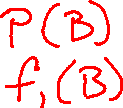 P(B)
f,(B)